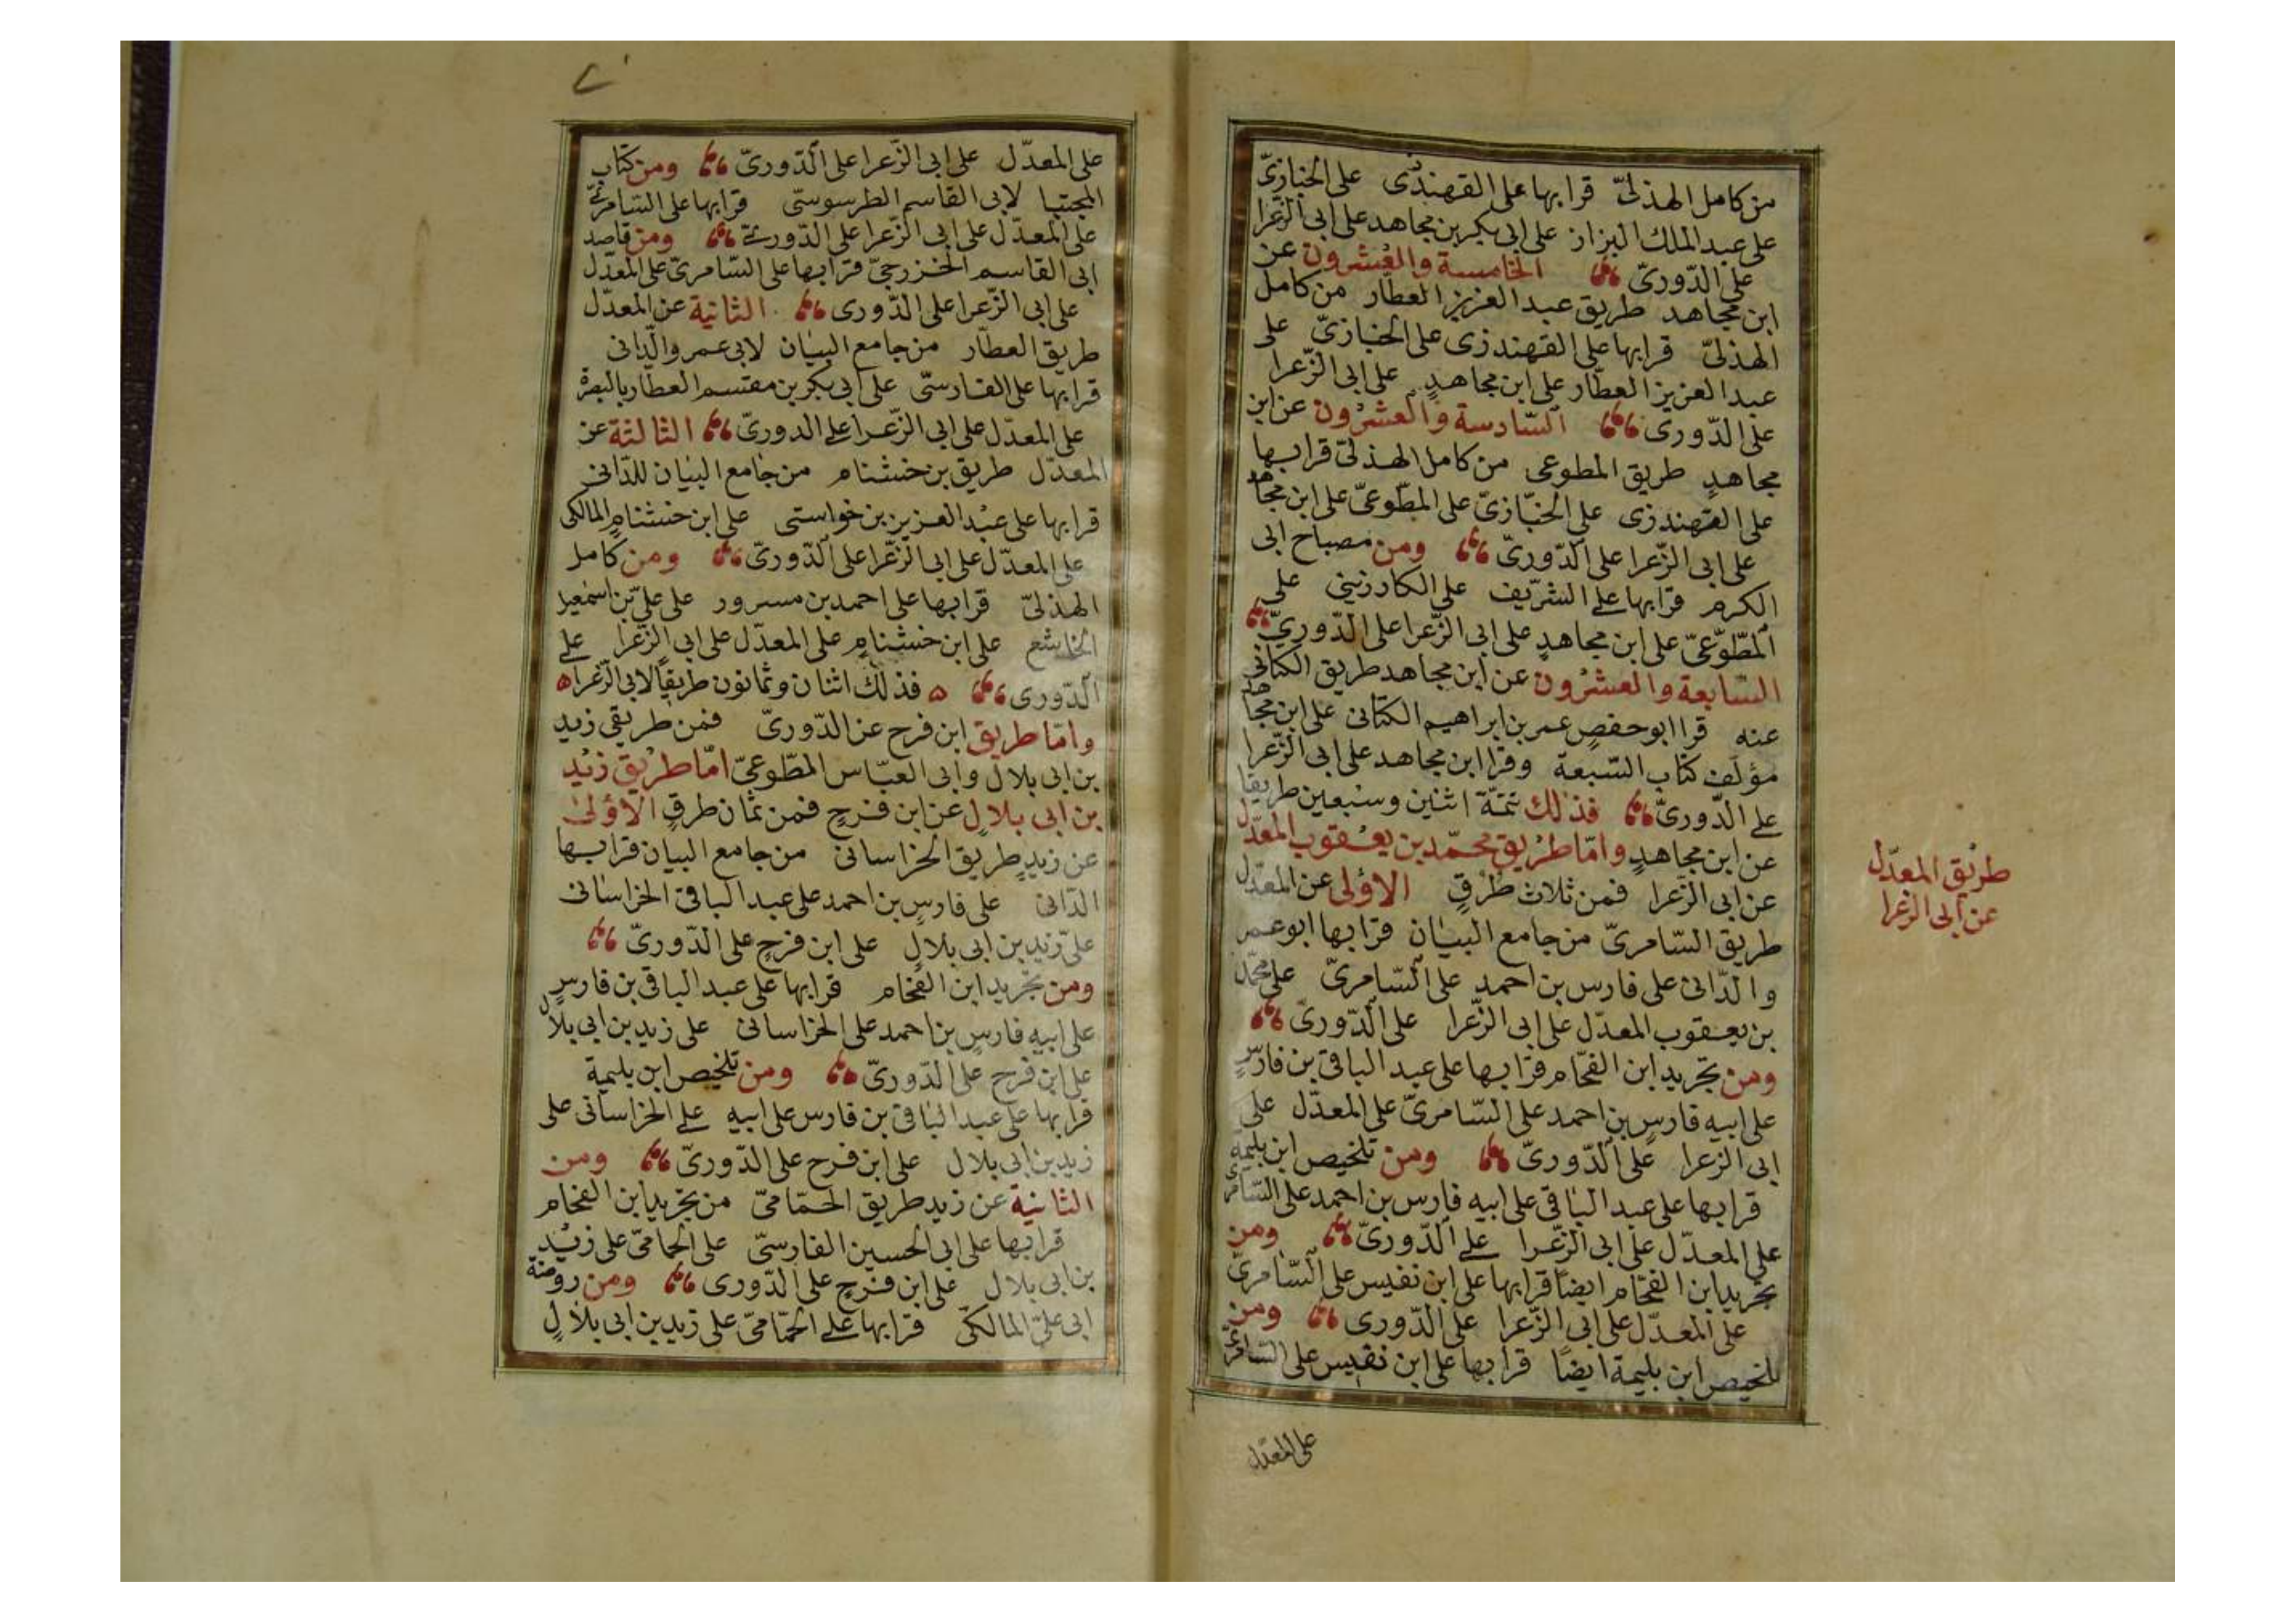 من كامل الهذلىّ قرا بها على القهندزى على الخبازىّ
على عبد الملك البزاز على ابى بكر بن مجاهد على ابى الزعرا
على الدّورىّ الخامسة والعشرون عن
ابن مجاهد طريق عبد العزيز العطّار من كامل
الهذلىّ قرا بها على القهندزى على الخبازىّ على
عبد العزيز العطّار على ابن مجاهدٍ على ابى الزّعرا
على الدّورى السّادسة والعشرون عن ابن
مجاهدٍ طريق المطوعى من كامل الهذلىّ قرا بها
على القهندزى على الخبّازىّ على المطّوعىّ على ابن مجاهد
على ابى الزّعرا على الدّورىّ ومن مصباح ابى
الكرم قرا بها على الشّريف على الكارزينى على
المطّوّعىّ على ابن مجاهدٍ على ابى الزّعرا على الدّورىّ
السّابعة والعشرون عن ابن مجاهد طريق الكتانى
عنه قرا ابو حفصٍ عمر بن ابراهيم الكتانى على ابن مجاهد
مؤلف كتاب السّبعة وقرا ابن مجاهد على ابى الزّعرا
على الدّورىّ فذلك تتمّة اثنين وسبعين طريقا
عن ابن مجاهدٍ وامّا طريق محمّد بن يعقوب المعدّل
عن ابى الزّعرا فمن ثلاث طرقٍ الاولى عن المعدّل
طريق السّامرىّ من جامع البيان قرا بها ابو عمر
والدّانى على فارس بن احمد على السّامرىّ على محمّد
بن يعقوب المعدّل على ابى الزّعرا على الدّورىّ
ومن تجريد ابن الفحّام قرا بها على عبد الباقى بن فارسٍ
على ابيه فارسٍ بن احمد على السّامرىّ على المعدّل على
ابى الزعرا على الدّورىّ ومن تلخيص ابن بليمة
قرا بها على عبد الباقى على ابيه فارس بن احمد على السّامرى
على المعدّل على ابى الزّعرا على الدّورىّ ومن
تجريد ابن الفحّام ايضًا قرا بها على ابن نفيس على السّامرىّ
على المعدّل على ابى الزّعرا على الدّورى ومن
تلخيص ابن بليمة ايضًا قرا بها على ابن نفيس على السّامرىّ
على المعدّل
طريق المعدّل
عن ابى الزعرا
على المعدّل على ابى الزّعرا على الدّورىّ ومن كتاب
المجتبا لابى القاسم الطرسوسىّ قرا بها على السّامرىّ
على المعدّل على ابى الزّعرا على الدّورىّ ومن قاصد
ابى القاسم الخزرجىّ قرا بها على السّامرىّ على المعدّل
على ابى الزّعرا على الدّورى الثانية عن المعدّل
طريق العطّار من جامع البيان لابى عمرو الدّانى
قرا بها على الفارسىّ على ابى بكر بن مقتسم العطّار بالبصرة
على المعدّل على ابى الزّعرا على الدورىّ الثالثة عن
المعدّل طريق بن خشنام من جامع البيان للدّانى
قرا بها على عبد العزيز بن خواستى على ابن خشنامٍ المالكى
على المعدّل على ابى الزّعرا على الدّورىّ ومن كامل
الهذلىّ قرا بها على احمد بن مسرور على علىّ بن اسمعيل
الخاشع على ابن خشنامٍ على المعدّل على ابى الزّعرا على
الدّورى ه فذلك اثنان وثمانون طريقًا لابى الزّعرا ه
وامّا طريق ابن فرح عن الدّورىّ فمن طريقى زيد
بن ابى بلال وابى العبّاس المطّوعىّ امّا طريق زيد
بن ابى بلالٍ عن ابن فرحٍ فمن ثمان طرقٍ الاولى
عن زيدٍ طريق الخراسانى من جامع البيان قرا بها
الدّانى على فارسٍ بن احمد على عبد الباقى الخراسانى
على زيد بن ابى بلالٍ على ابن فرحٍ على الدّورىّ
ومن تجريد ابن الفحّام قرا بها على عبد الباقى بن فارسٍ
على ابيه فارسٍ بن احمد على الخراسانى على زيد بن ابى بلال
على ابن فرح على الدّورىّ ومن تلخيص ابن بليمة
قرا بها على عبد الباقى بن فارس على ابيه على الخراسانى على
زيد بن ابى بلال على ابن فرح على الدّورىّ ومن
الثانية عن زيد طريق الحمّامىّ من تجريد ابن الفحام
قرا بها على ابى الحسين الفارسىّ على الحمامىّ على زيد
بن ابى بلال على ابن فرحٍ على الدّورى ومن روضة
ابى علىّ المالكىّ قرا بها على الحمّامىّ على زيد بن ابى بلالٍ